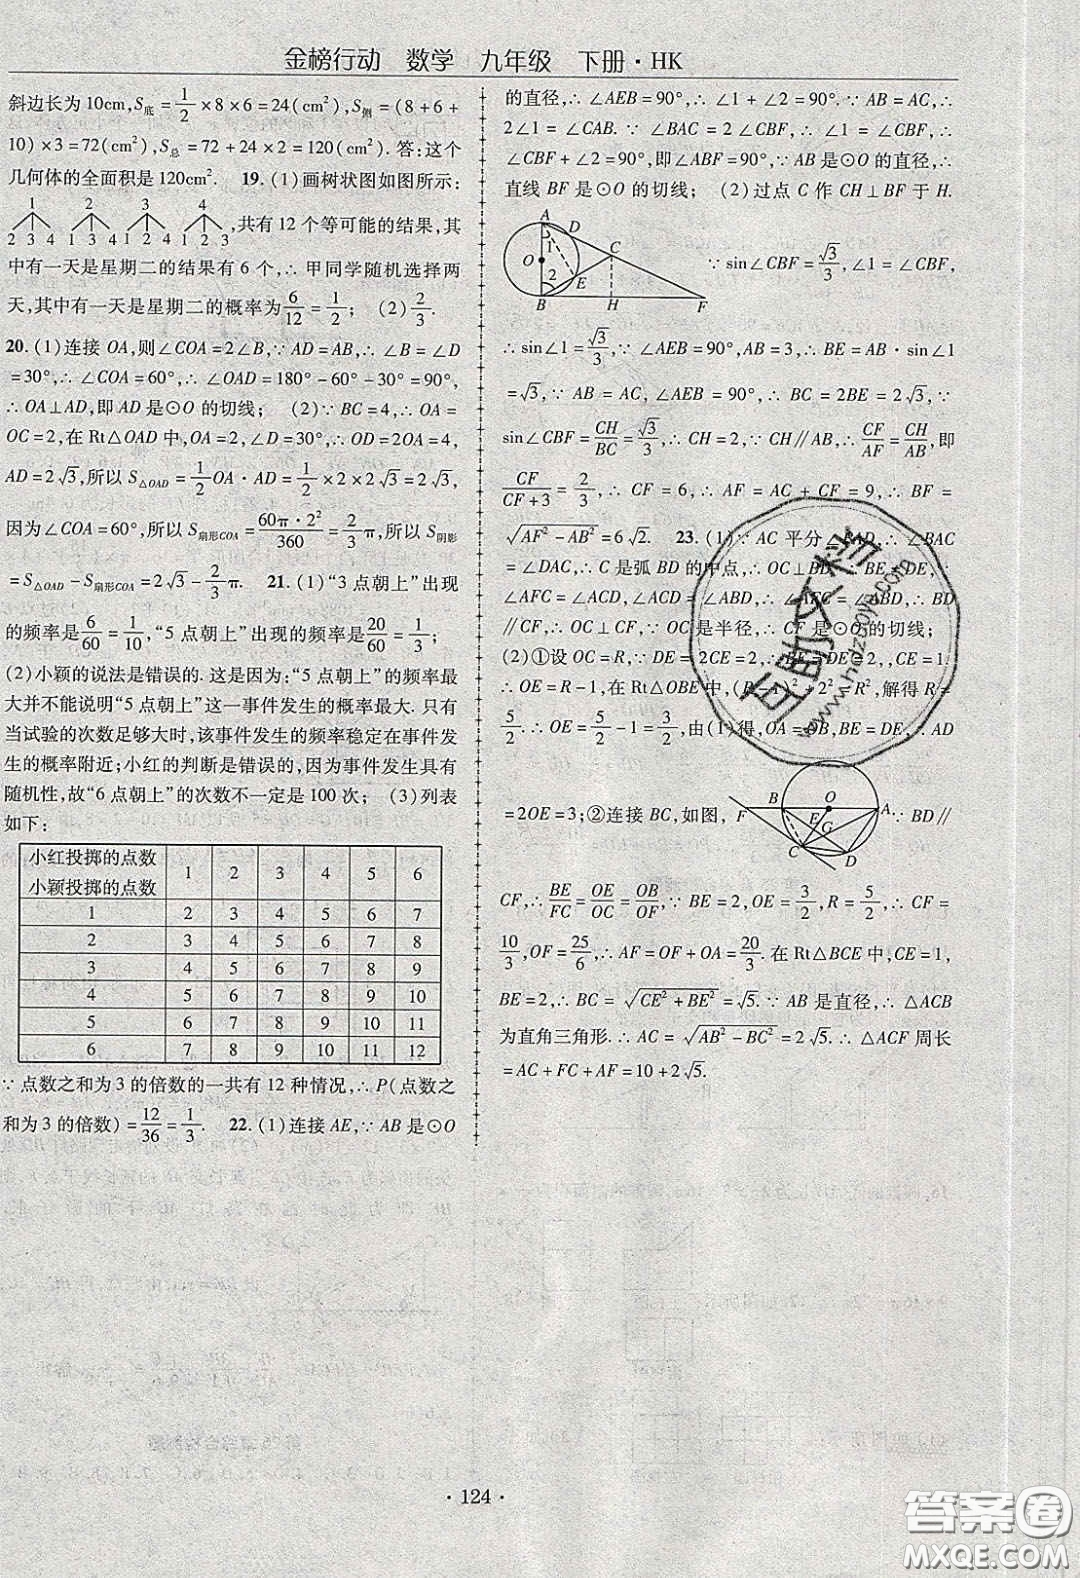 金榜行动　数学　九年级　下册·HK
斜边长为10cm,S底=1/2×8×6=24(cm²),S侧=(8+6+
10)×3=72(cm²),S总=72+24×2=120(cm²).答:这个
几何体的全面积是120cm². 19.(1)画树状图如图所示:
1 2 3 4
2 3 4 1 3 4 1 2 4 1 2 3 ,共有12个等可能的结果,其
中有一天是星期二的结果有6个,∴甲同学随机选择两
天,其中有一天是星期二的概率为6/12=1/2; (2)2/3.
20.(1)连接OA,则∠COA=2∠B,∵AD=AB,∴∠B=∠D
=30°,∴∠COA=60°,∴∠OAD=180°-60°-30°=90°,
∴OA⊥AD,即AD是⊙O的切线; (2)∵BC=4,∴OA=
OC=2,在Rt△OAD中,OA=2,∠D=30°,∴OD=2OA=4,
AD=2√3,所以S△OAD=1/2OA·AD=1/2×2×2√3=2√3,
因为∠COA=60°,所以S扇形COA=60π·2²/360=2/3π,所以S阴影
=S△OAD-S扇形COA=2√3-2/3π. 21.(1)“3点朝上”出现
的频率是6/60=1/10,“5点朝上”出现的频率是20/60=1/3;
(2)小颖的说法是错误的.这是因为:“5点朝上”的频率最
大并不能说明“5点朝上”这一事件发生的概率最大.只有
当试验的次数足够大时,该事件发生的频率稳定在事件发
生的概率附近;小红的判断是错误的,因为事件发生具有
随机性,故“6点朝上”的次数不一定是100次; (3)列表
如下:
小红投掷的点数
小颖投掷的点数 1 2 3 4 5 6
1 2 3 4 5 6 7
2 3 4 5 6 7 8
3 4 5 6 7 8 9
4 5 6 7 8 9 10
5 6 7 8 9 10 11
6 7 8 9 10 11 12
∵点数之和为3的倍数的一共有12种情况,∴P(点数之
和为3的倍数)=12/36=1/3. 22.(1)连接AE,∵AB是⊙O
的直径,∴∠AEB=90°,∴∠1+∠2=90°.∵AB=AC,∴
2∠1=∠CAB.∵∠BAC=2∠CBF,∴∠1=∠CBF,∴
∠CBF+∠2=90°,即∠ABF=90°,∵AB是⊙O的直径,∴
直线BF是⊙O的切线; (2)过点C作CH⊥BF于H.
A D 1 C O 2 E B H F
∵sin∠CBF=√3/3,∠1=∠CBF,
∴sin∠1=√3/3,∵∠AEB=90°,AB=3,∴BE=AB·sin∠1
=√3,∵AB=AC,∠AEB=90°,∴BC=2BE=2√3,∵
sin∠CBF=CH/BC=√3/3,∴CH=2,∵CH∥AB,∴CF/AF=CH/AB,即
CF/(CF+3)=2/3,∴CF=6,∴AF=AC+CF=9,∴BF=
√(AF²-AB²)=6√2. 23.(1)∵AC平分∠BAD,∴∠BAC
=∠DAC,∴C是弧BD的中点,∴OC⊥BD,∴BE=DE,
∠AFC=∠ACD,∵∠ACD=∠ABD,∴∠AFC=∠ABD,∴BD
∥CF,∴OC⊥CF,∵OC是半径,∴CF是⊙O的切线;
(2)①设OC=R,∵DE=2CE=2,∴BE=DE=2,CE=1.
∴OE=R-1,在Rt△OBE中,(R-1)²+2²=R²,解得R=
5/2.∴OE=5/2-1=3/2,由(1)得,OA=OB,BE=DE,∴AD
=2OE=3;②连接BC,如图,
F B O A E G C D
∵BD∥
CF,∴BE/FC=OE/OC=OB/OF,∵BE=2,OE=3/2,R=5/2,∴CF=
10/3,OF=25/6,∴AF=OF+OA=20/3.在Rt△BCE中,CE=1,
BE=2,∴BC=√(CE²+BE²)=√5.∵AB是直径,∴△ACB
为直角三角形.∴AC=√(AB²-BC²)=2√5.∴△ACF周长
=AC+FC+AF=10+2√5.
互助文档
www.hdzuoye.com
·124·
答案圈
MXQE.COM